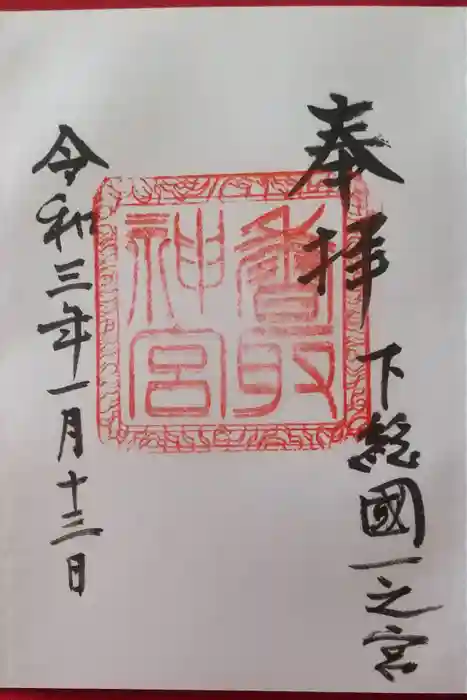 奉拝
下総國一之宮
香取
神宮
令和三年一月十三日